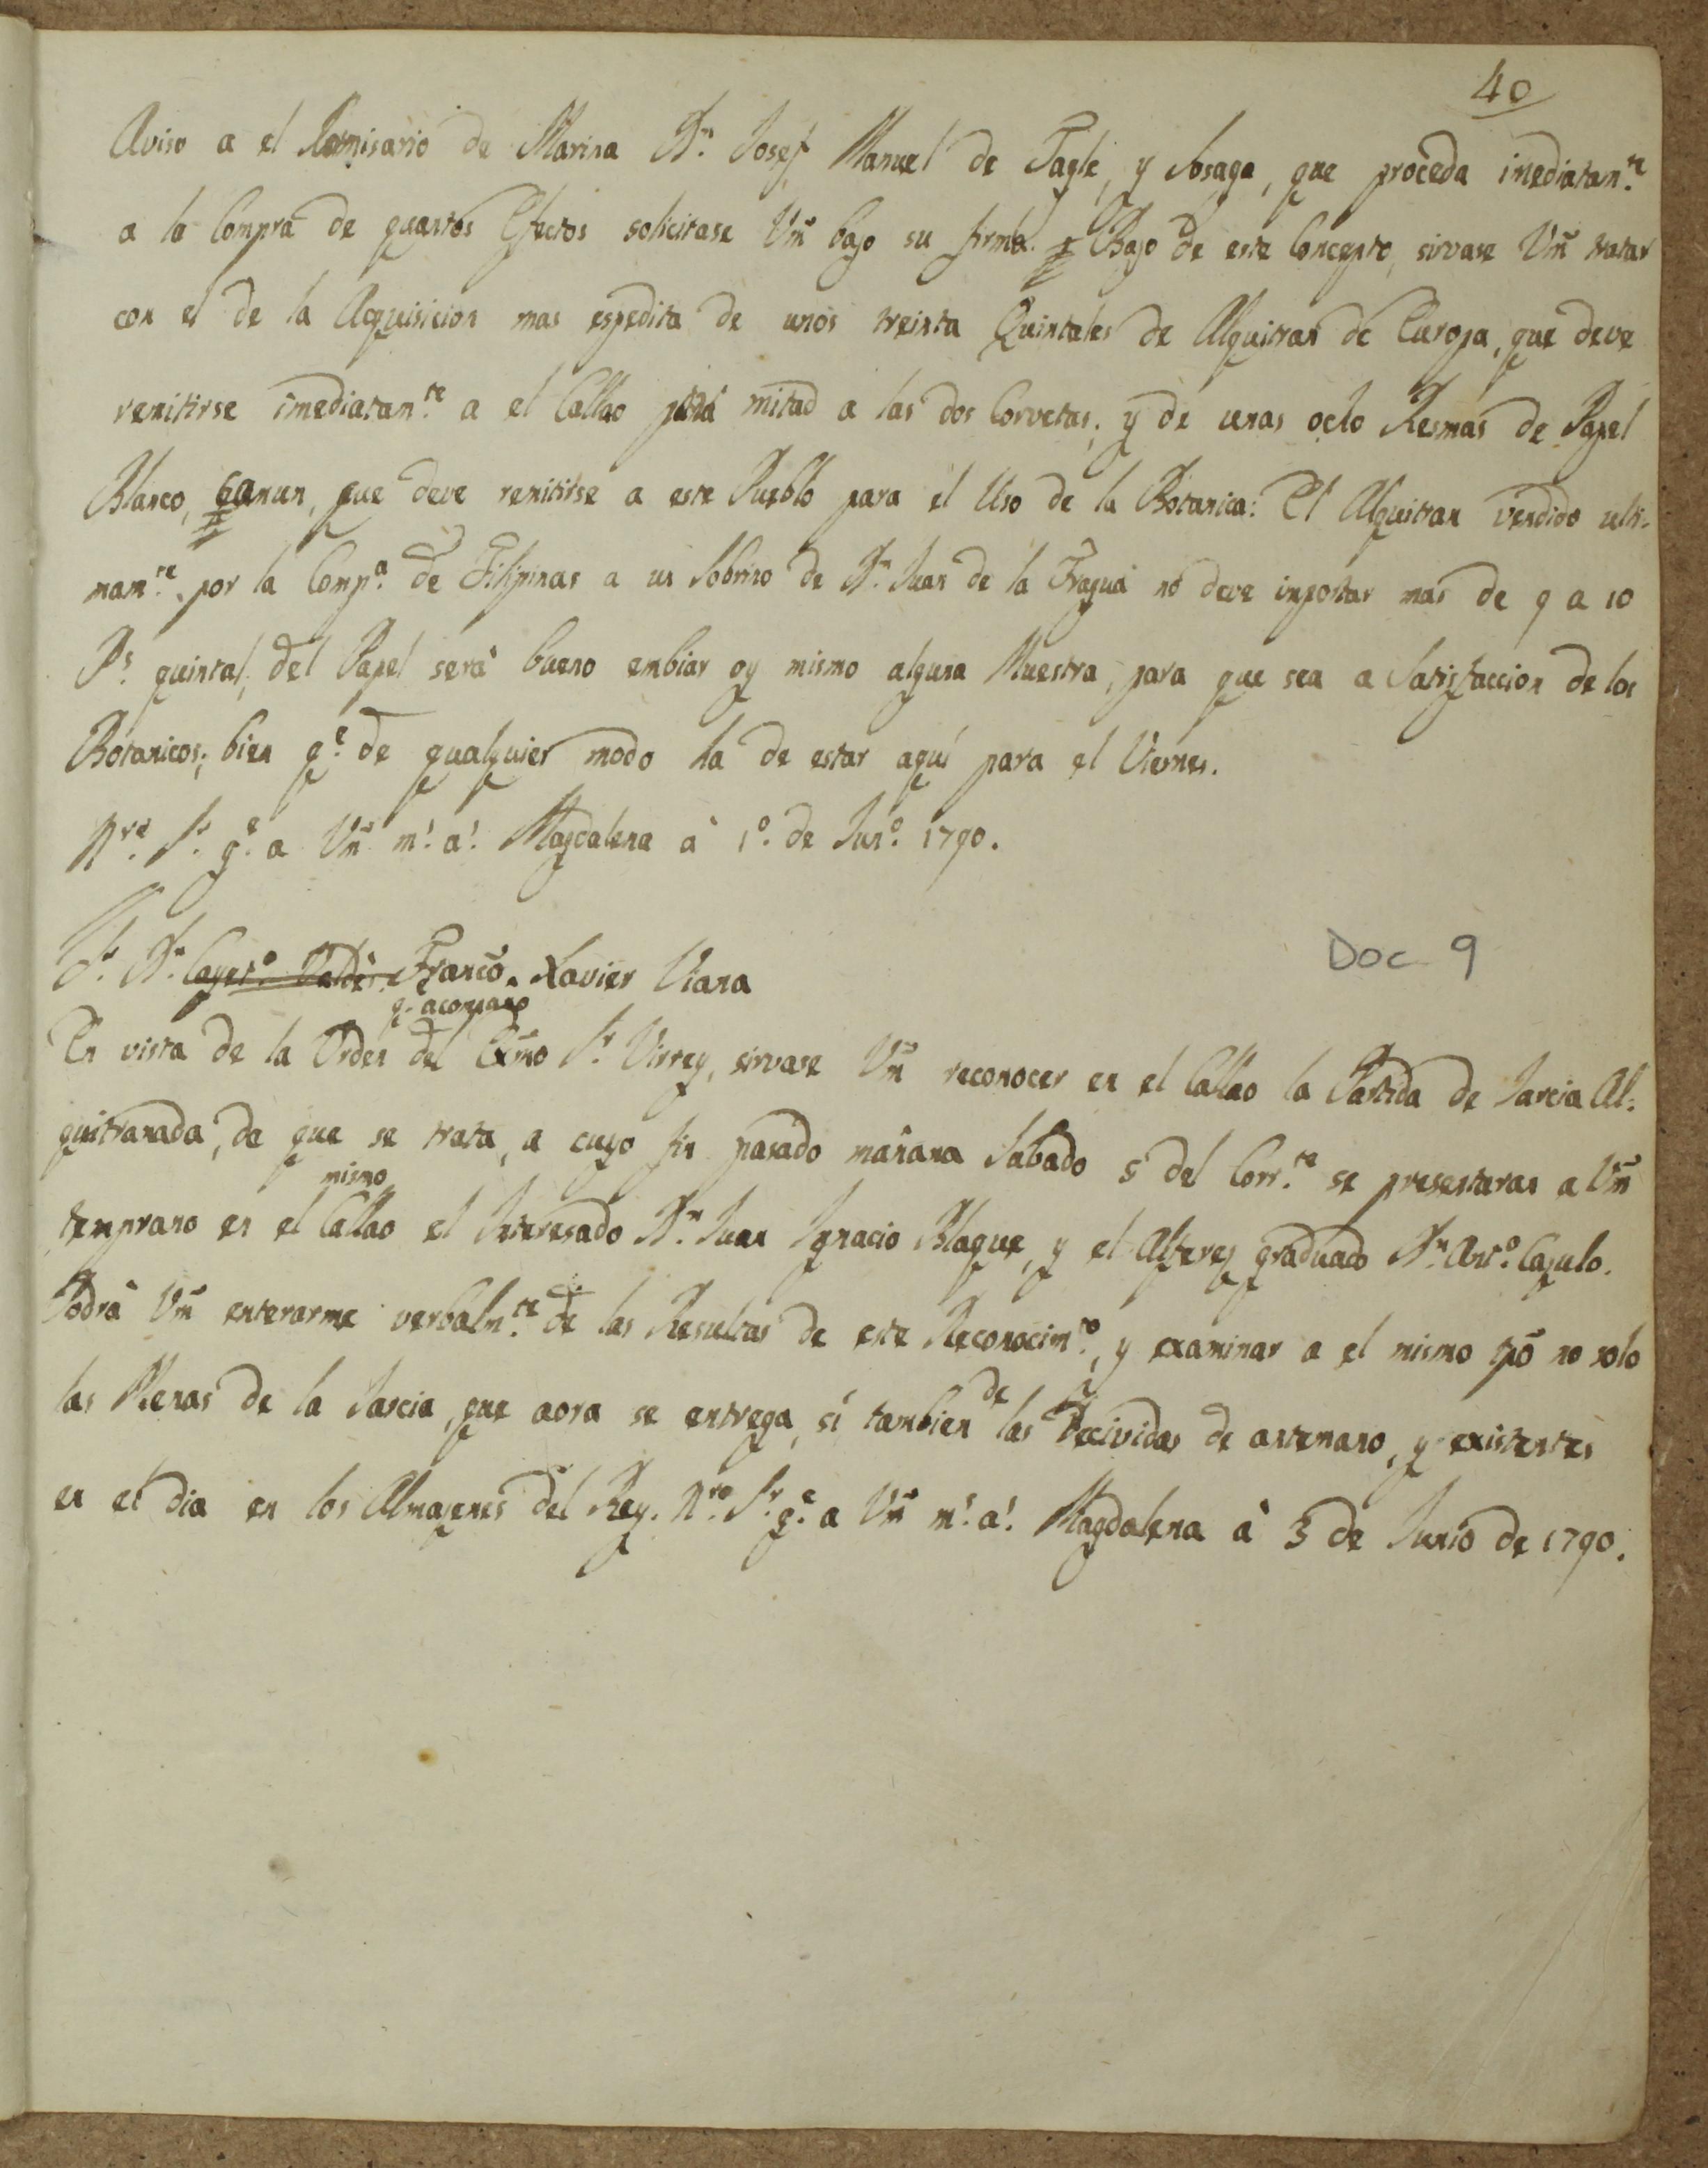 40
Aviso a el Comisario de Marina Dn. Josef Manuel de Tagle, y Isasaga, que proceda imediatamte.
a la Compra de quantos Efectos solicitase Vm bajo su firma. Bajo de este Concepto, sirvase Vm tratar
con el de la Acquisicion mas espedita de unos treinta Quintales de Alquitran de Europa, que deve
remitirse imediatamte. a el Callao para mitad a las dos Corvetas; y de unas ocho Resmas de Papel
Blanco, comun, que deve remitirse a este Pueblo para el Uso de la Botanica: El Alquitran vendido ulti-
mamte. por la Compa. de Filipinas a un Sobrino de Dn. Juan de la Fragua no deve importar mas de 9 a 10
Ps. quintal; del Papel será bueno embiar oy mismo alguna Muestra, para que sea a Satisfaccion de los
Botanicos; bien qe. de qualquier modo ha de estar aquí para el Viernes.
Nro. Sr. ge. a Vm ms. as. Magdalena à 1o. de Juno. 1790.
Doc 9
Sr. Dn. Cayeto. Valdés Franco. Xavier Viana
q. acompaño
En vista de la Orden del Exmo Sr. Virrey, sirvase Vm reconocer en el Callao la Partida de Jarcia Al-
quitranada, de que se trata, a cuyo fin pasado mañana Sabado 5 del Corrte. se presentaran a Vm
mismo
temprano en el Callao el Interesado Dn. Juan Ignacio Blaque, y el Alferez graduado Dn. Anto. Cazulo.
Podrá Vm enterarme verbalmte. de las Resultas de este Reconocimto., y examinar a el mismo tpo no solo
de
las Menas de la Jarcia, que aora se entrega, sí tambien las recividas de antemano, y existentes
en el dia en los Almazenes del Rey. Nro. Sr. ge. a Vm ms. as. Magdalena à 3 de Junio de 1790.